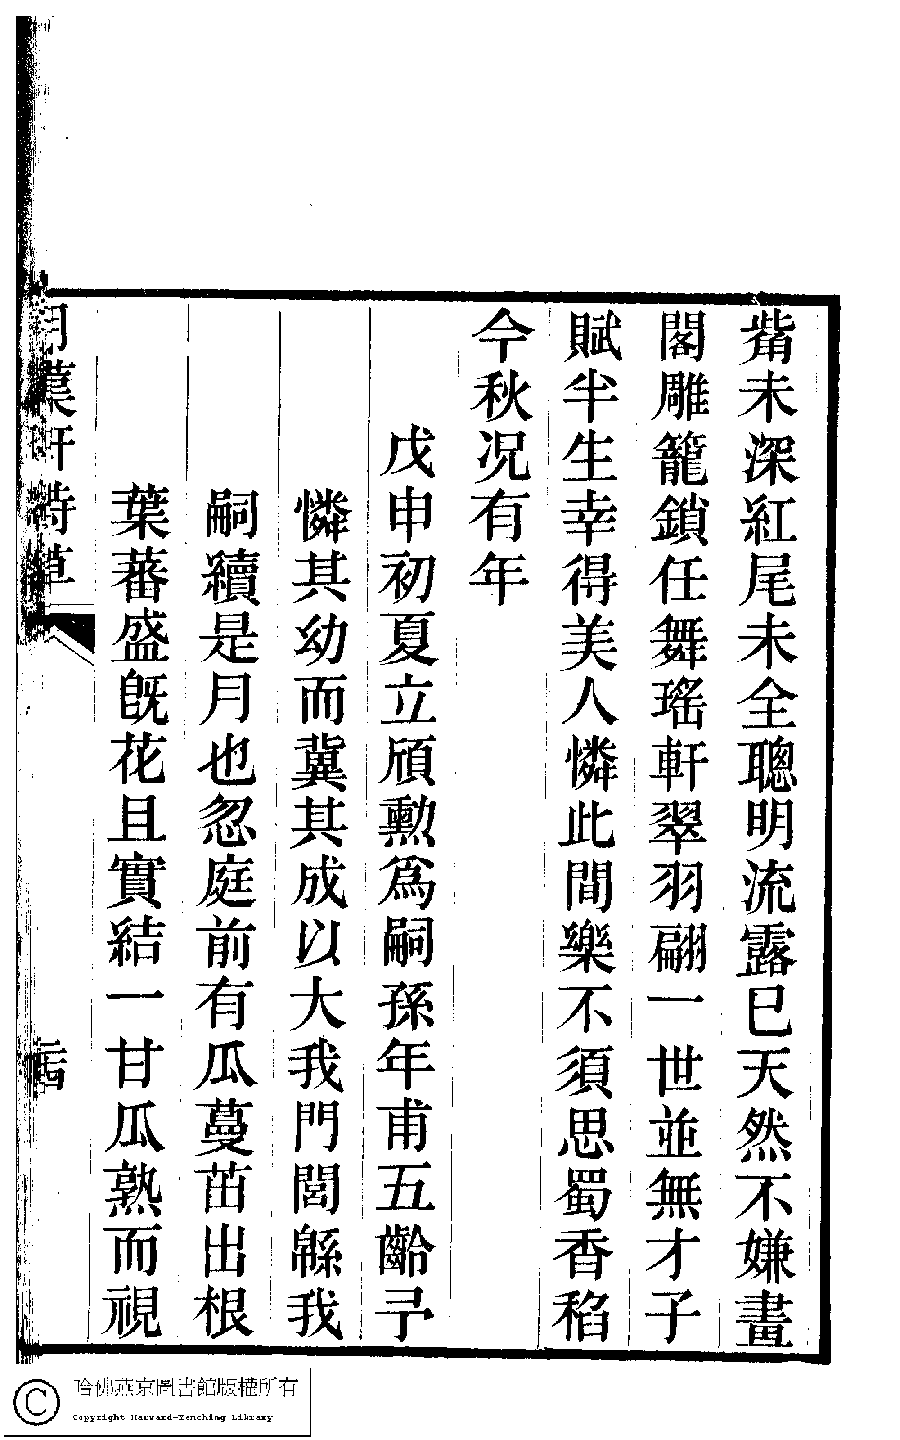 觜未深紅尾未全聰明流露已天然不嫌畫
閣雕籠鎖任舞瑤軒翠羽翩一世並無才子
賦半生幸得美人憐此間樂不須思蜀香稻
今秋況有年
戊申初夏立頎勲為嗣孫年甫五齡予
憐其幼而冀其成以大我門閭緜我
嗣續是月也忽庭前有瓜蔓茁出根
葉蕃盛旣花且實結一甘瓜熟而視
軒詩草
哈佛燕京圖書館版權所有
Copyright Harvard-Yenching Library